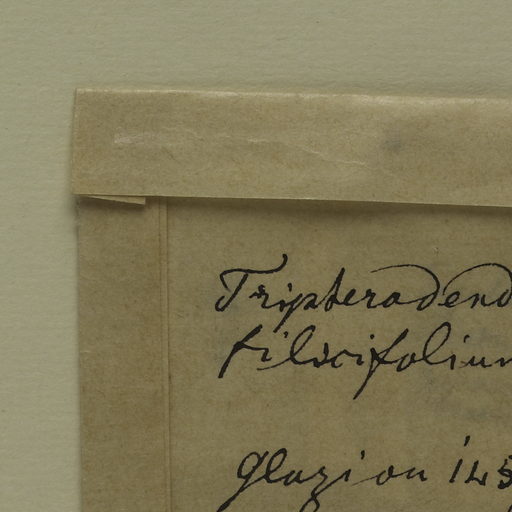 Tripterodend
filicifolium
Glaziou 145